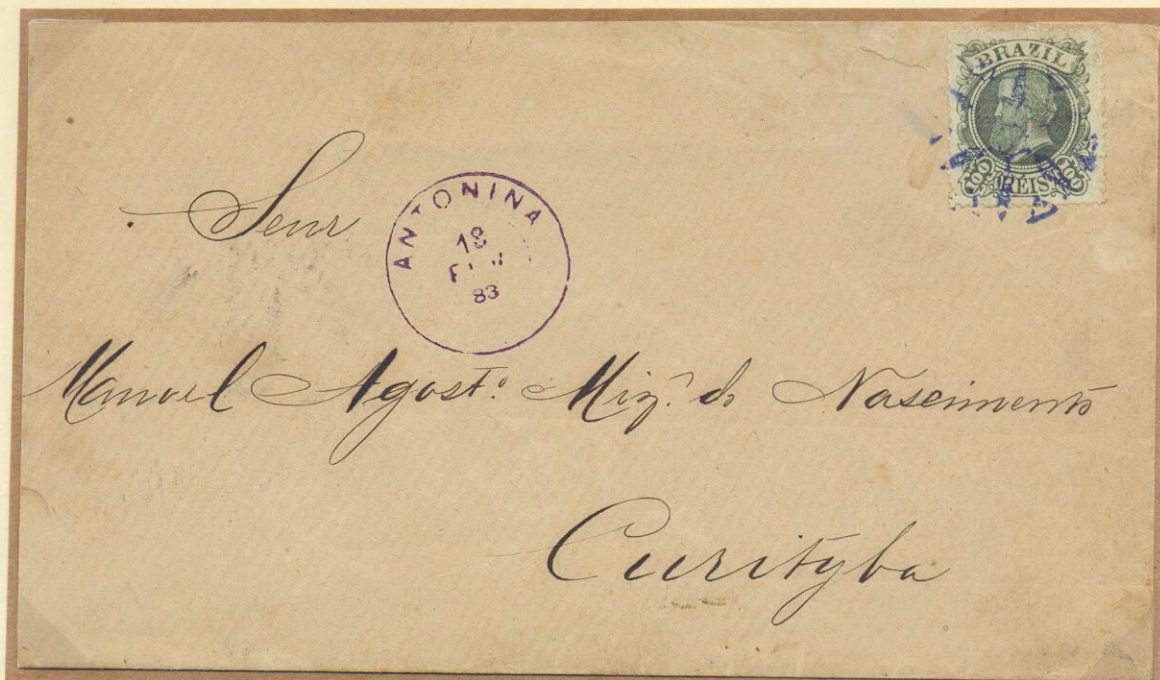 BRAZIL
100 RÉIS 100
ANTONINA
18
83
Manoel Agost.º do Nascimento
Curityba